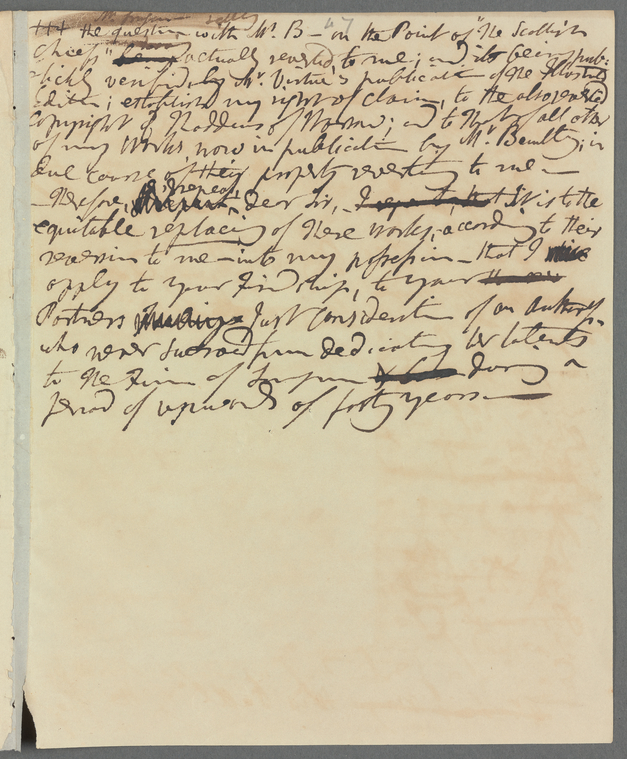 47
the question with Mr. B— on the Point of "The Scottish
Chiefs" actually reverted to me; and its being pub:
lickly verified, by Mr. Virtue's publication of the Illustrated
Edition; establishes my right of claim, to the also reverted
Copyright of Thaddeus of Warsaw; and to that of all other
of my Works now in publication by Mr. Bentley; in
due course of their property reverting to me—
—Therefore, I repeat, Dear Sir, — It is to the
equitable replacing of these works, according to their
reversion to me—into my possession—that I
apply to your Friendship, to your
Partners Just Consideration of an Authoress
who never swerved from dedicating her talents
to the Firm of Longman during a
period of upwards of forty years.—